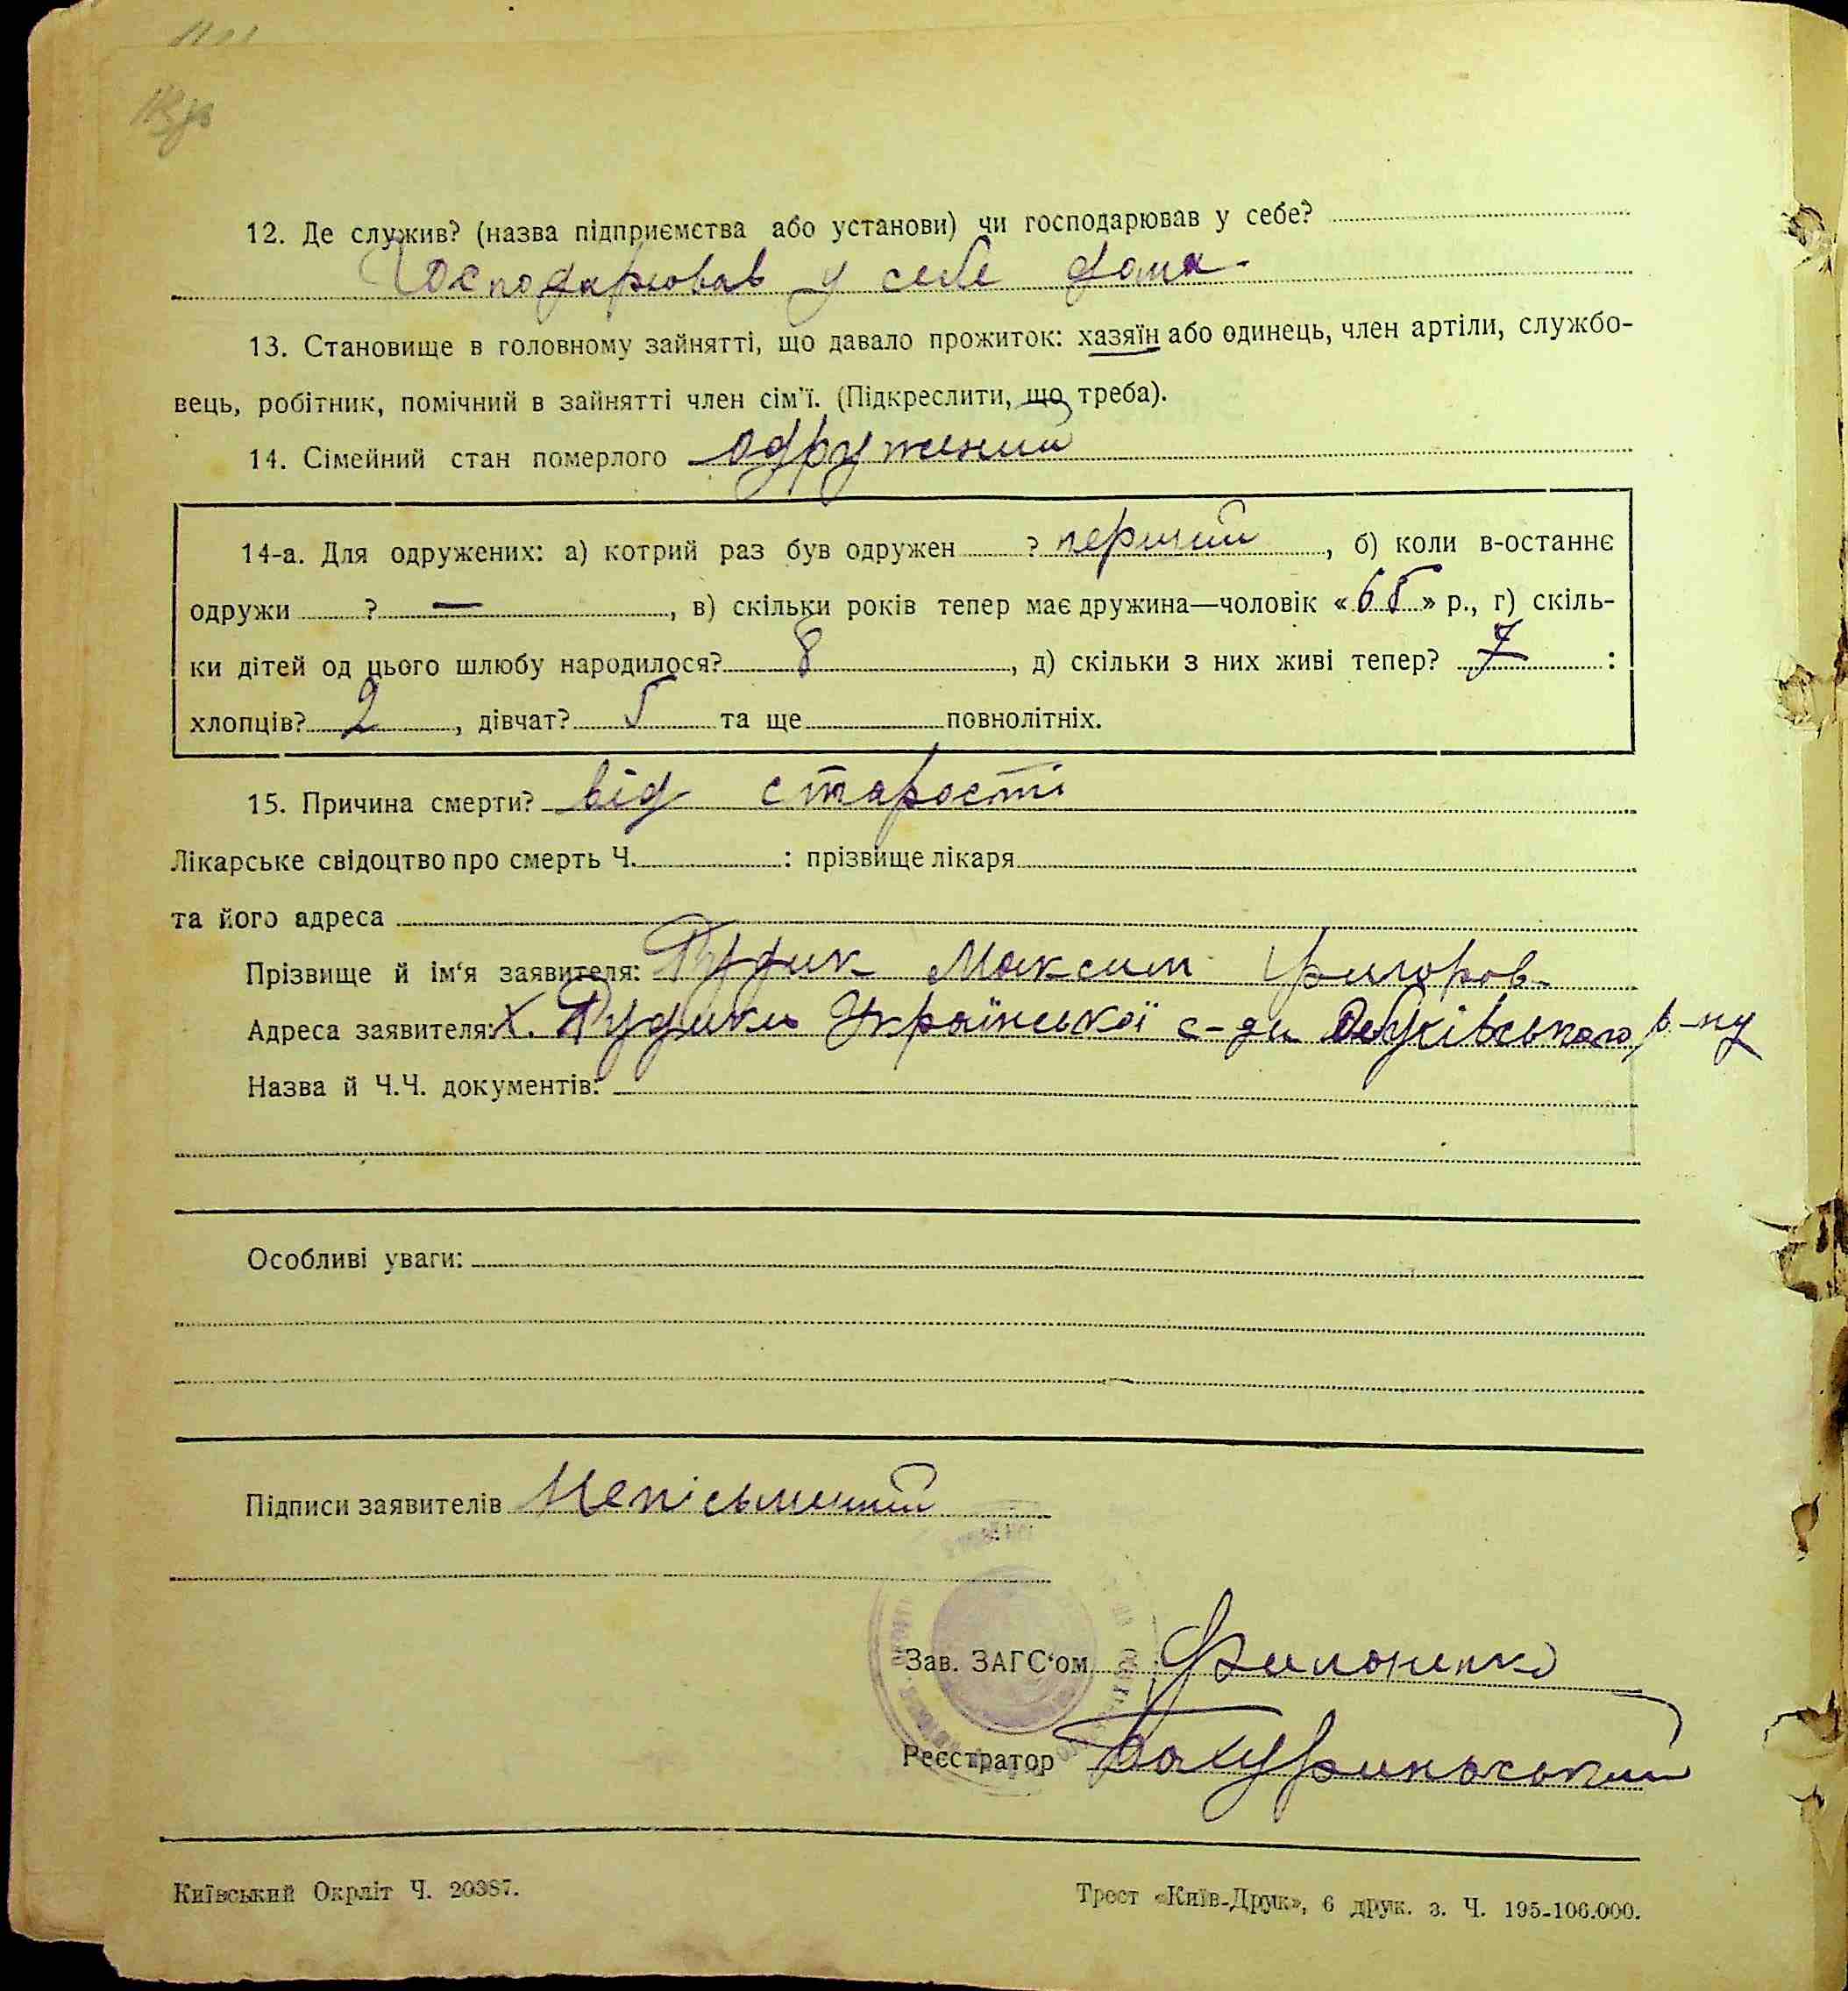 12. Де служив? (назва підприємства або установи) чи господарював у себе?
Господарював у себе дома
13. Становище в головному зайнятті, що давало прожиток: хазяїн або одинець, член артіли, службо-
вець, робітник, помічний в зайнятті член сім'ї. (Підкреслити, що треба).
14. Сімейний стан померлого одружений
14-а. Для одружених: а) котрий раз був одружен ? перший, б) коли в-останнє
одружи ? —, в) скільки років тепер має дружина—чоловік «65» р., г) скіль-
ки дітей од цього шлюбу народилося? 8, д) скільки з них живі тепер? 7 :
хлопців? 2, дівчат? 5 та ще повнолітніх.
15. Причина смерти? від старості
Лікарське свідоцтво про смерть Ч. : прізвище лікаря
та його адреса
Прізвище й ім'я заявителя: Рудик Максим Григоров.
Адреса заявителя: х. Рудики Української с-ди Обухівського р-ну
Назва й Ч.Ч. документів:
Особливі уваги:
Підписи заявителів Непісьменний
Зав. ЗАГС'ом Филоненко
Реєстратор
Київський Окрліт Ч. 20387.
Трест «Київ-Друк», 6 друк. з. Ч. 195-106.000.